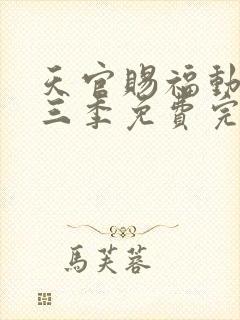 天官賜福動
三季免費完
馬芙蓉